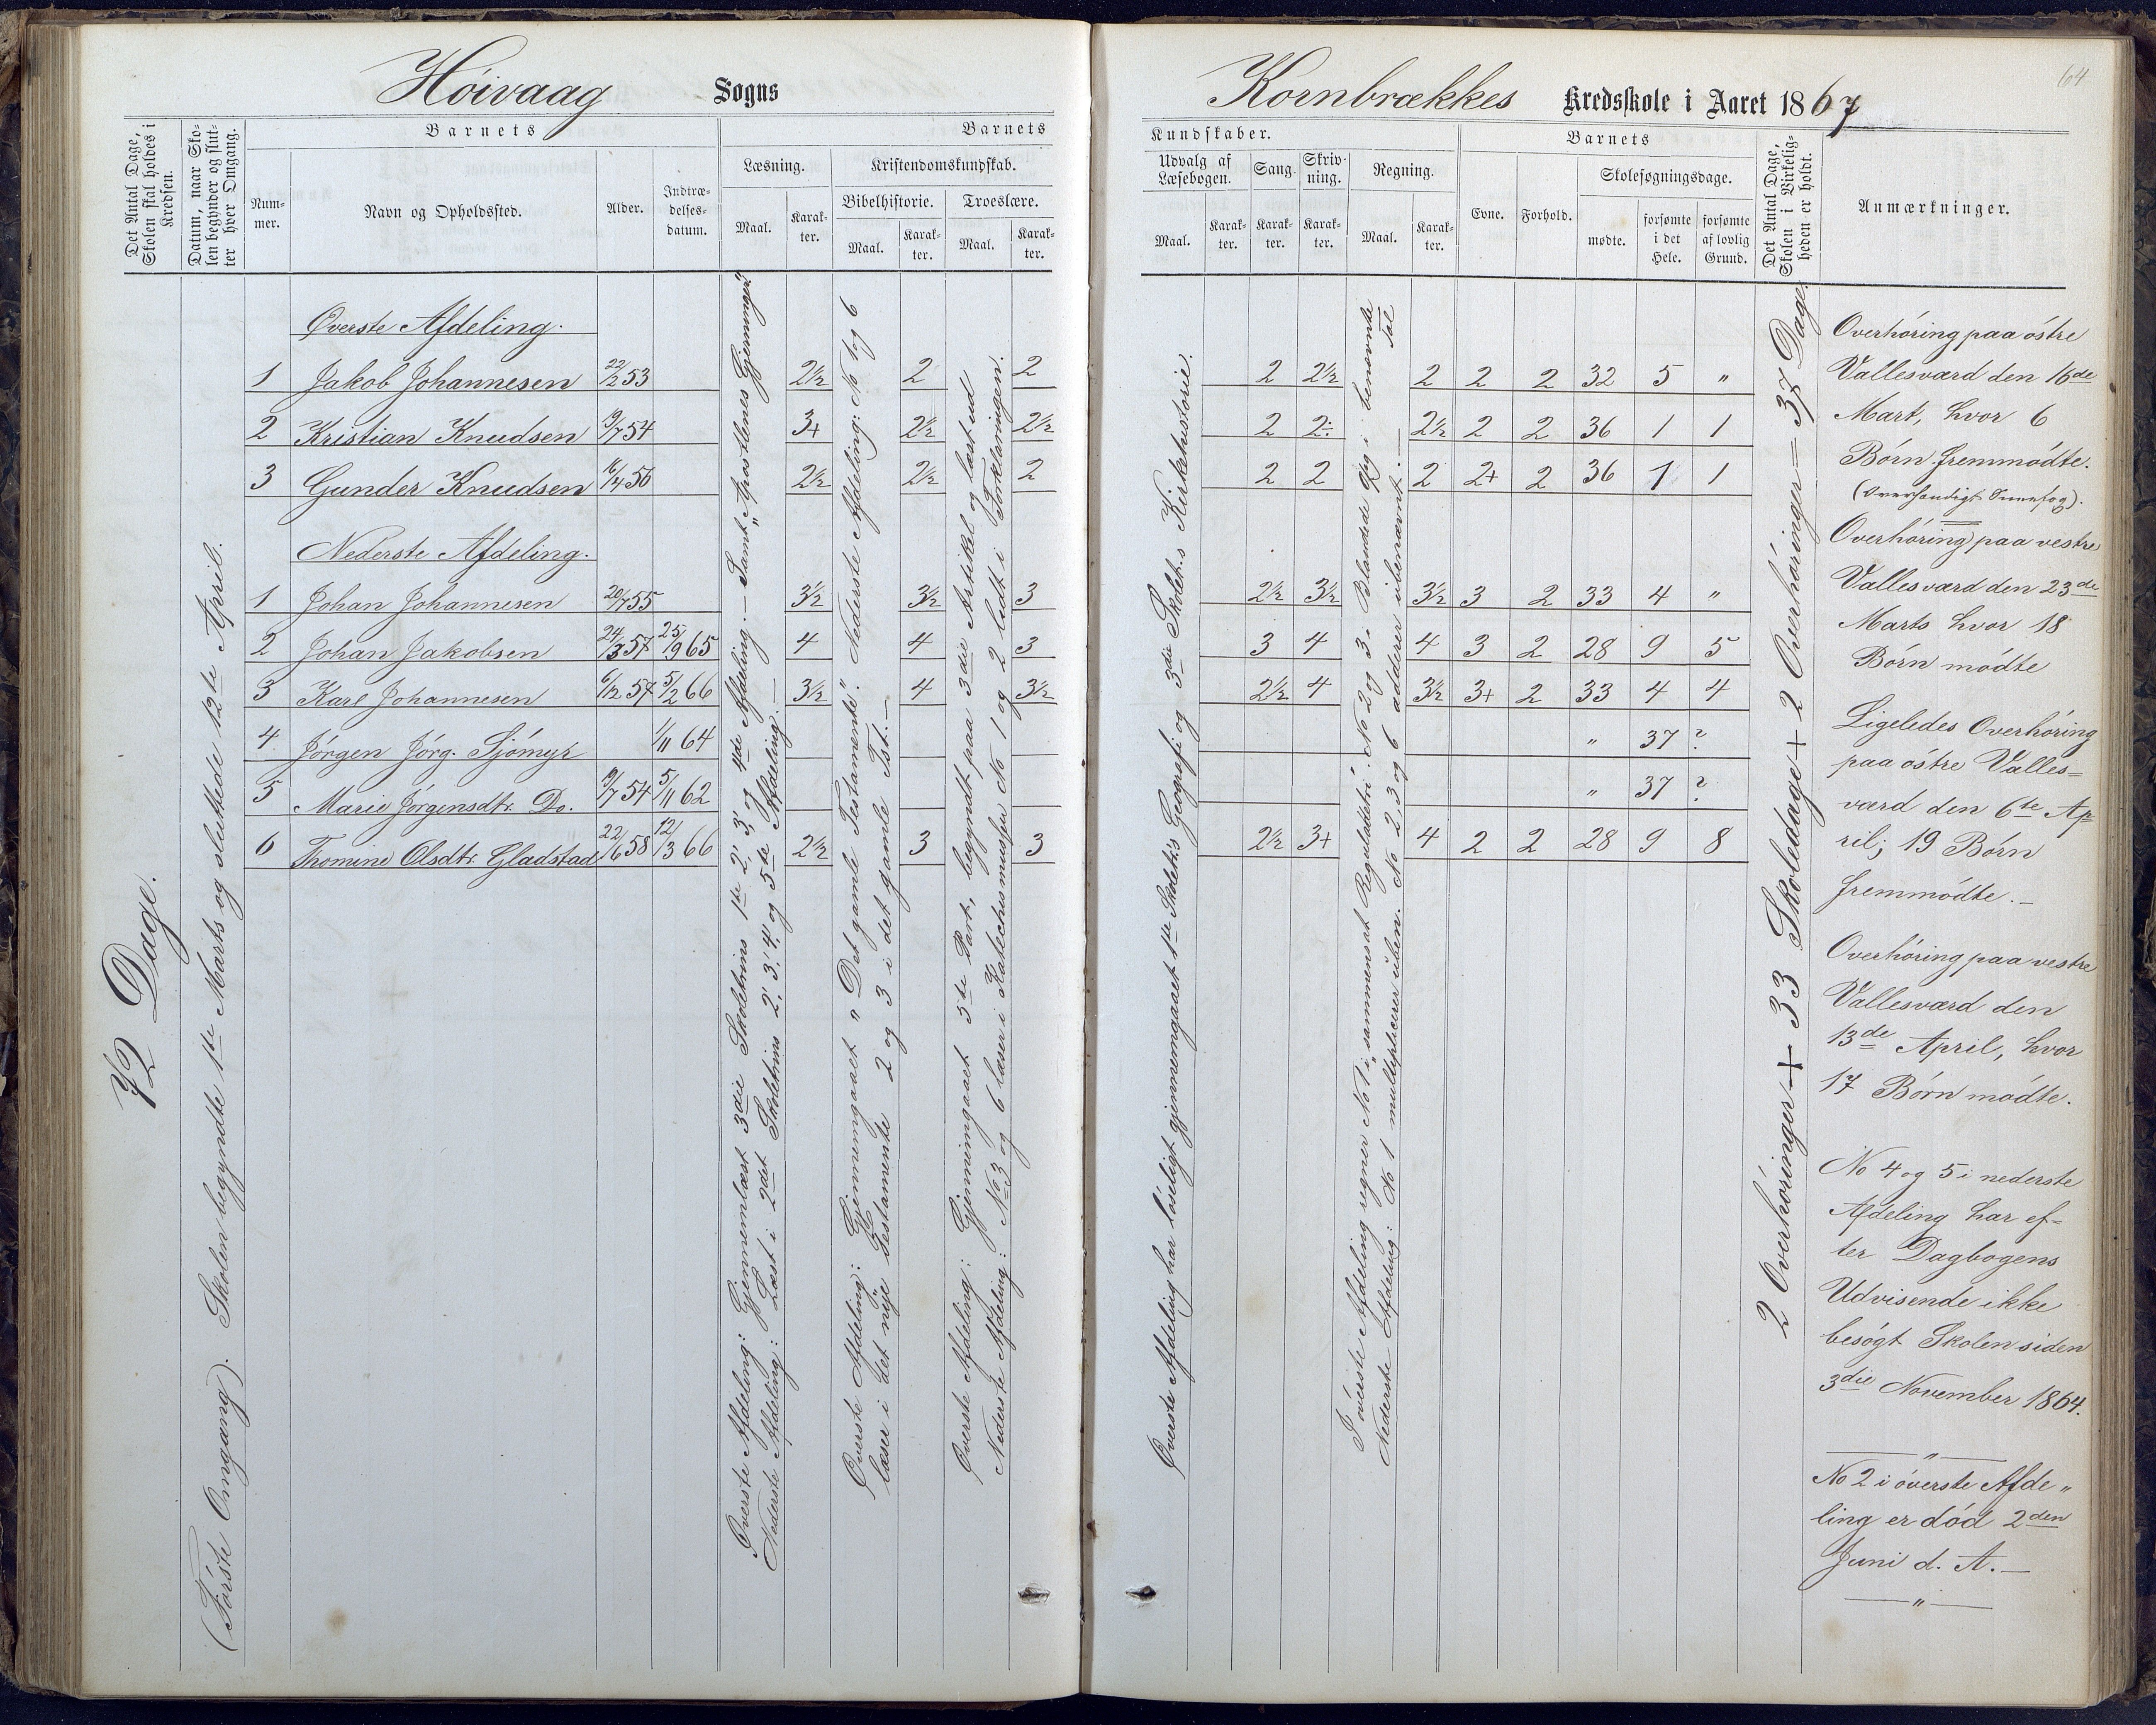 Höivaag Sogns
Kornbrækkes Kredsskole i Aaret 1867
64
Det Antal Dage, Skolen skal holdes i Kredsen.
Datum, naar Skolen begynder og slutter hver Omgang.
Barnets
Nummer.
Navn og Opholdssted.
Alder.
Indtrædelsesdatum.
Barnets
Læsning.
Maal.
Karakter.
Kristendomskundskab.
Bibelhistorie.
Maal.
Karakter.
Troeslære.
Maal.
Karakter.
Kundskaber.
Udvalg af Læsebogen.
Maal.
Karakter.
Sang.
Karakter.
Skrivning.
Karakter.
Regning.
Maal.
Karakter.
Barnets
Evne.
Forhold.
Skolesøgningsdage.
mødte.
forsømte i det Hele.
forsømte af lovlig Grund.
Det Antal Dage, Skolen i Virkeligheden er holdt.
Anmærkninger.
72 Dage.
(Förste Omgang). Skolen begyndte 1ste Marts og sluttede 12te April.
Överste Afdeling.
1 Jakob Johannesen 22/2 53 2½ 2 2 2 2½ 2 2 2 32 5 "
2 Kristian Knudsen 19/7 54 3+ 2½ 2½ 2 2÷ 2½ 2 2 36 1 1
3 Gunder Knudsen 16/4 56 2½ 2½ 2 2 2 2 2+ 2 36 1 1
Nederste Afdeling.
1 Johan Johannesen 20/7 55 3½ 3½ 3 2½ 3½ 3½ 3 2 33 4 "
2 Johan Jakobsen 24/3 57 25/9 65 4 4 3 3 4 4 3 2 28 9 5
3 Karl Johannesen 6/12 57 5/2 66 3½ 4 3½ 2½ 4 3½ 3+ 2 33 4 4
4 Jörgen Jörg. Sjömyr 1/11 64 " 37 ?
5 Marie Jörgensdtr. Do. 9/7 54 5/11 62 " 37 ?
6 Thomine Olsdtr. Gladstad 22/6 58 12/3 66 2½ 3 3 2½ 3+ 4 2 2 28 9 8
Överste Afdeling: Gjennemlæst 3die Skoletrins 1ste 2', 3', og 4de Afdeling. — Samt „Apostlenes Gjerninger."
Nederste Afdeling: Læst i 2det Skoletrins 2', 3', 4' og 5te Afdeling. —
Överste Afdeling: Gjennemgaaet „Det gamle Testamente". Nederste Afdeling: No 1 og 6
læser i det nye Testamente 2 og 3 i det gamle Tst. —
Överste Afdeling: Gjennemgaaet 3die Part, begyndt paa 3die Artikel og læst ud
Nederste Afdeling: No 3 og 6 læser i Katechismusen No 1 og 2 ledt i Forklaringen.
Överste Afdeling har löseligt gjennemgaaet 1ste Skoletr.s Geografi og 3die Skolet.s Kirkehistorie.
I överste Afdeling regner No 1 i „sammensat Reguladetri" No 2 og 3. Blandede Rgg i benævnte Tal
Nederste Afdeling: No 1 multiplicerer uben. No 2, 3 og 6 adderer ubenævnt. —
2 Overhöringer + 33 Skoledage + 2 Overhöringer = 37 Dage.
Overhöring paa östre
Vallesværd den 16de
Mart, hvor 6
Börn fremmödte.
Overhöring paa vestre
Vallesværd den 23de
Marts hvor 18
Börn mödte
Ligeledes Overhöring
paa östre Valles=
værd den 6te Ap=
ril; 19 Börn
fremmödte. —
Overhöring paa vestre
Vallesværd den
13de April, hvor
17 Börn mödte.
No 4 og 5 i nederste
Afdeling har ef=
ter Dagbogens
Udvisende ikke
besögt Skolen siden
3die November 1864.
"
No 2 i överste Afde„
ling er död 2den
Juni d. A. —
"